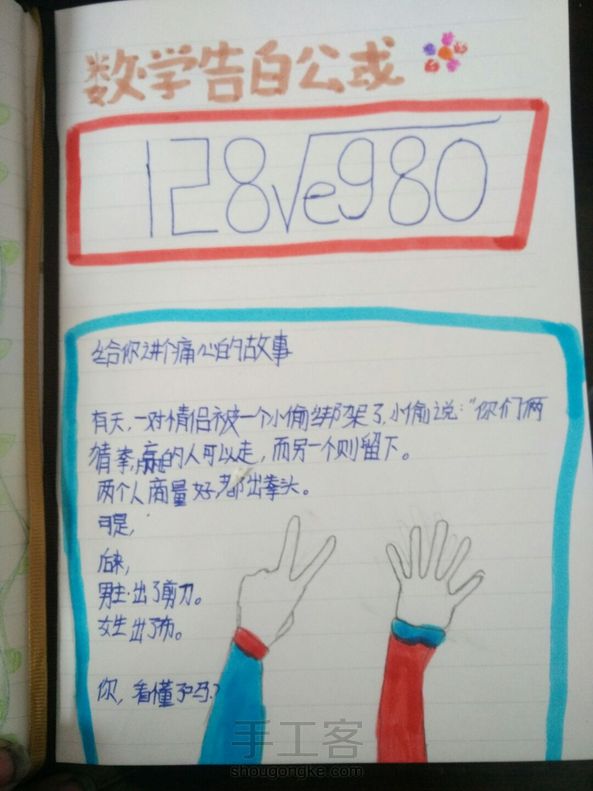 数学告白公式
128√e980
给你讲个痛心的故事
有天,一对情侣被一个小偷绑架了,小偷说:"你们俩
猜拳,赢的人可以走,而另一个则留下。
两个人商量好都出拳头。
可是,
后来,
男生出了剪刀。
女生出了布。
你,看懂了吗?
手工客
shougongke.com